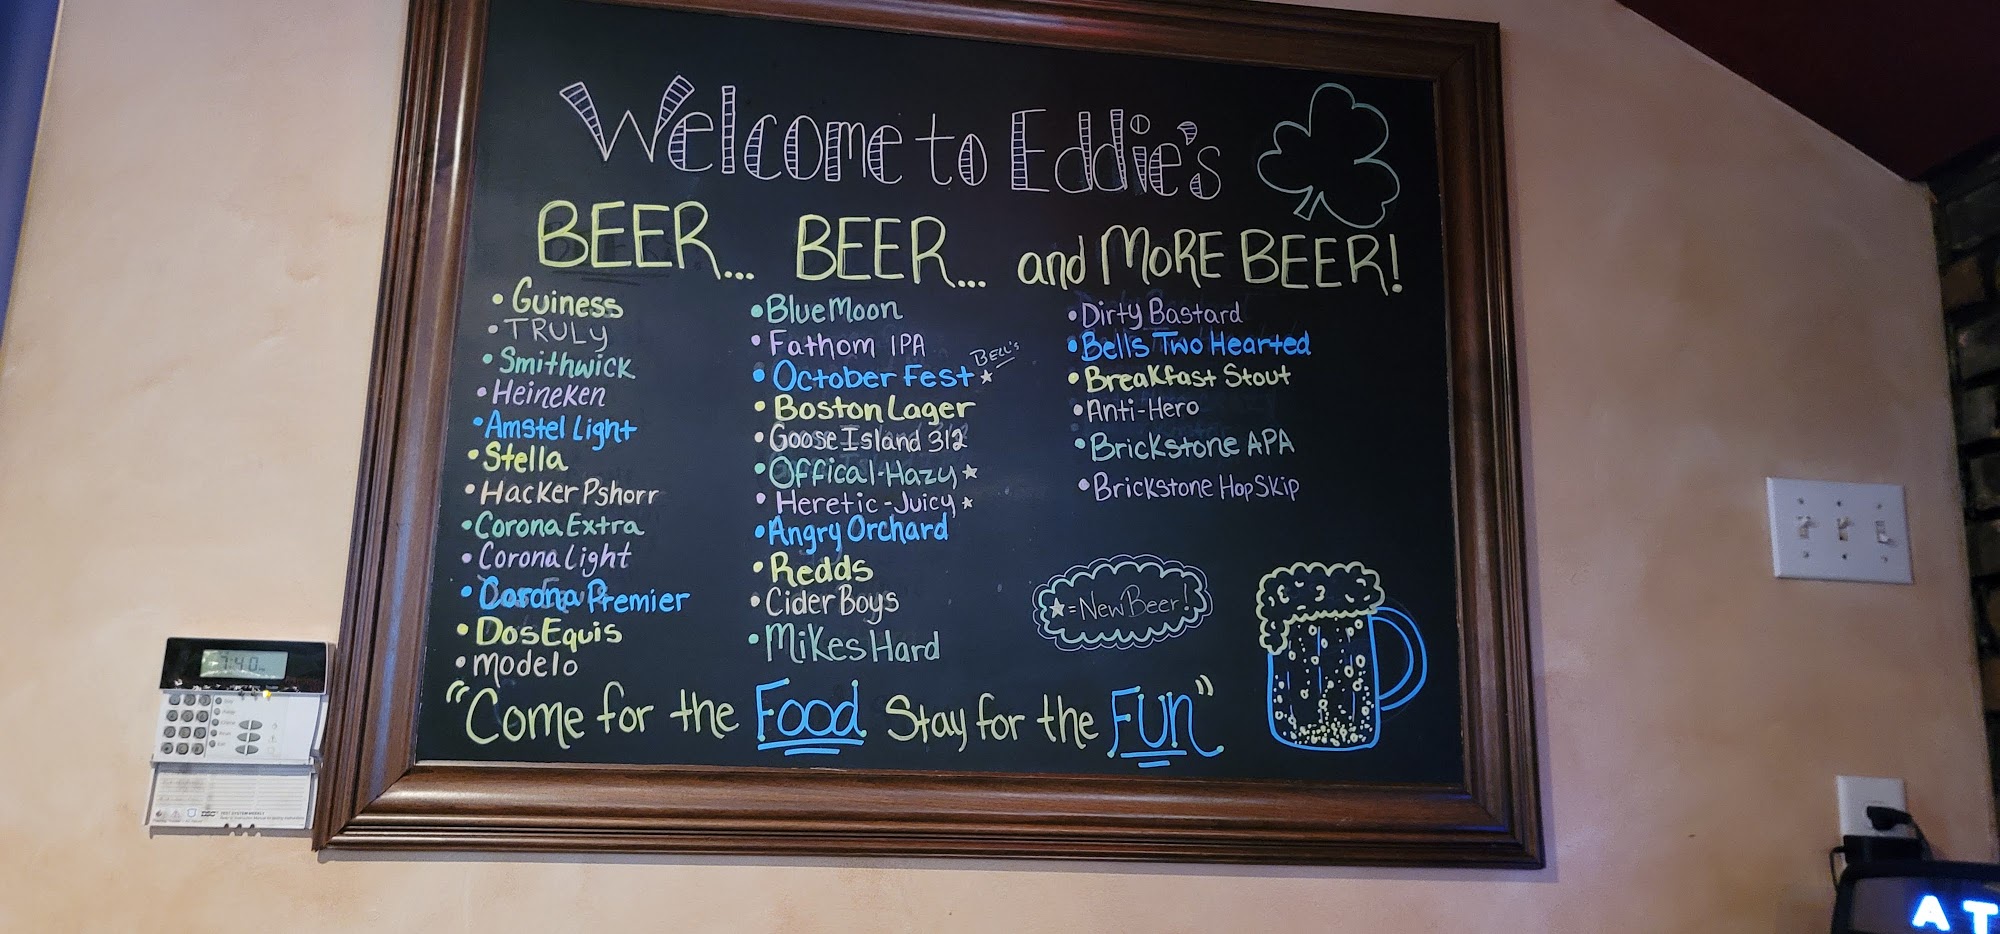 Welcome to Eddie's
BEER... BEER... and MORE BEER!
• Guiness
• TRULY
• Smithwick
• Heineken
• Amstel Light
• Stella
• Hacker Pshorr
• Corona Extra
• Corona Light
• Corona Premier
• Dos Equis
• Modelo
• Blue Moon
• Fathom IPA
• October Fest ★ BELL'S
• Boston Lager
• Goose Island 312
• Offical-Hazy ★
• Heretic-Juicy ★
• Angry Orchard
• Redds
• Cider Boys
• Mikes Hard
• Dirty Bastard
• Bells Two Hearted
• Breakfast Stout
• Anti-Hero
• Brickstone APA
• Brickstone HopSkip
★ = New Beer!
"Come for the Food Stay for the FUN"
7:40
AT